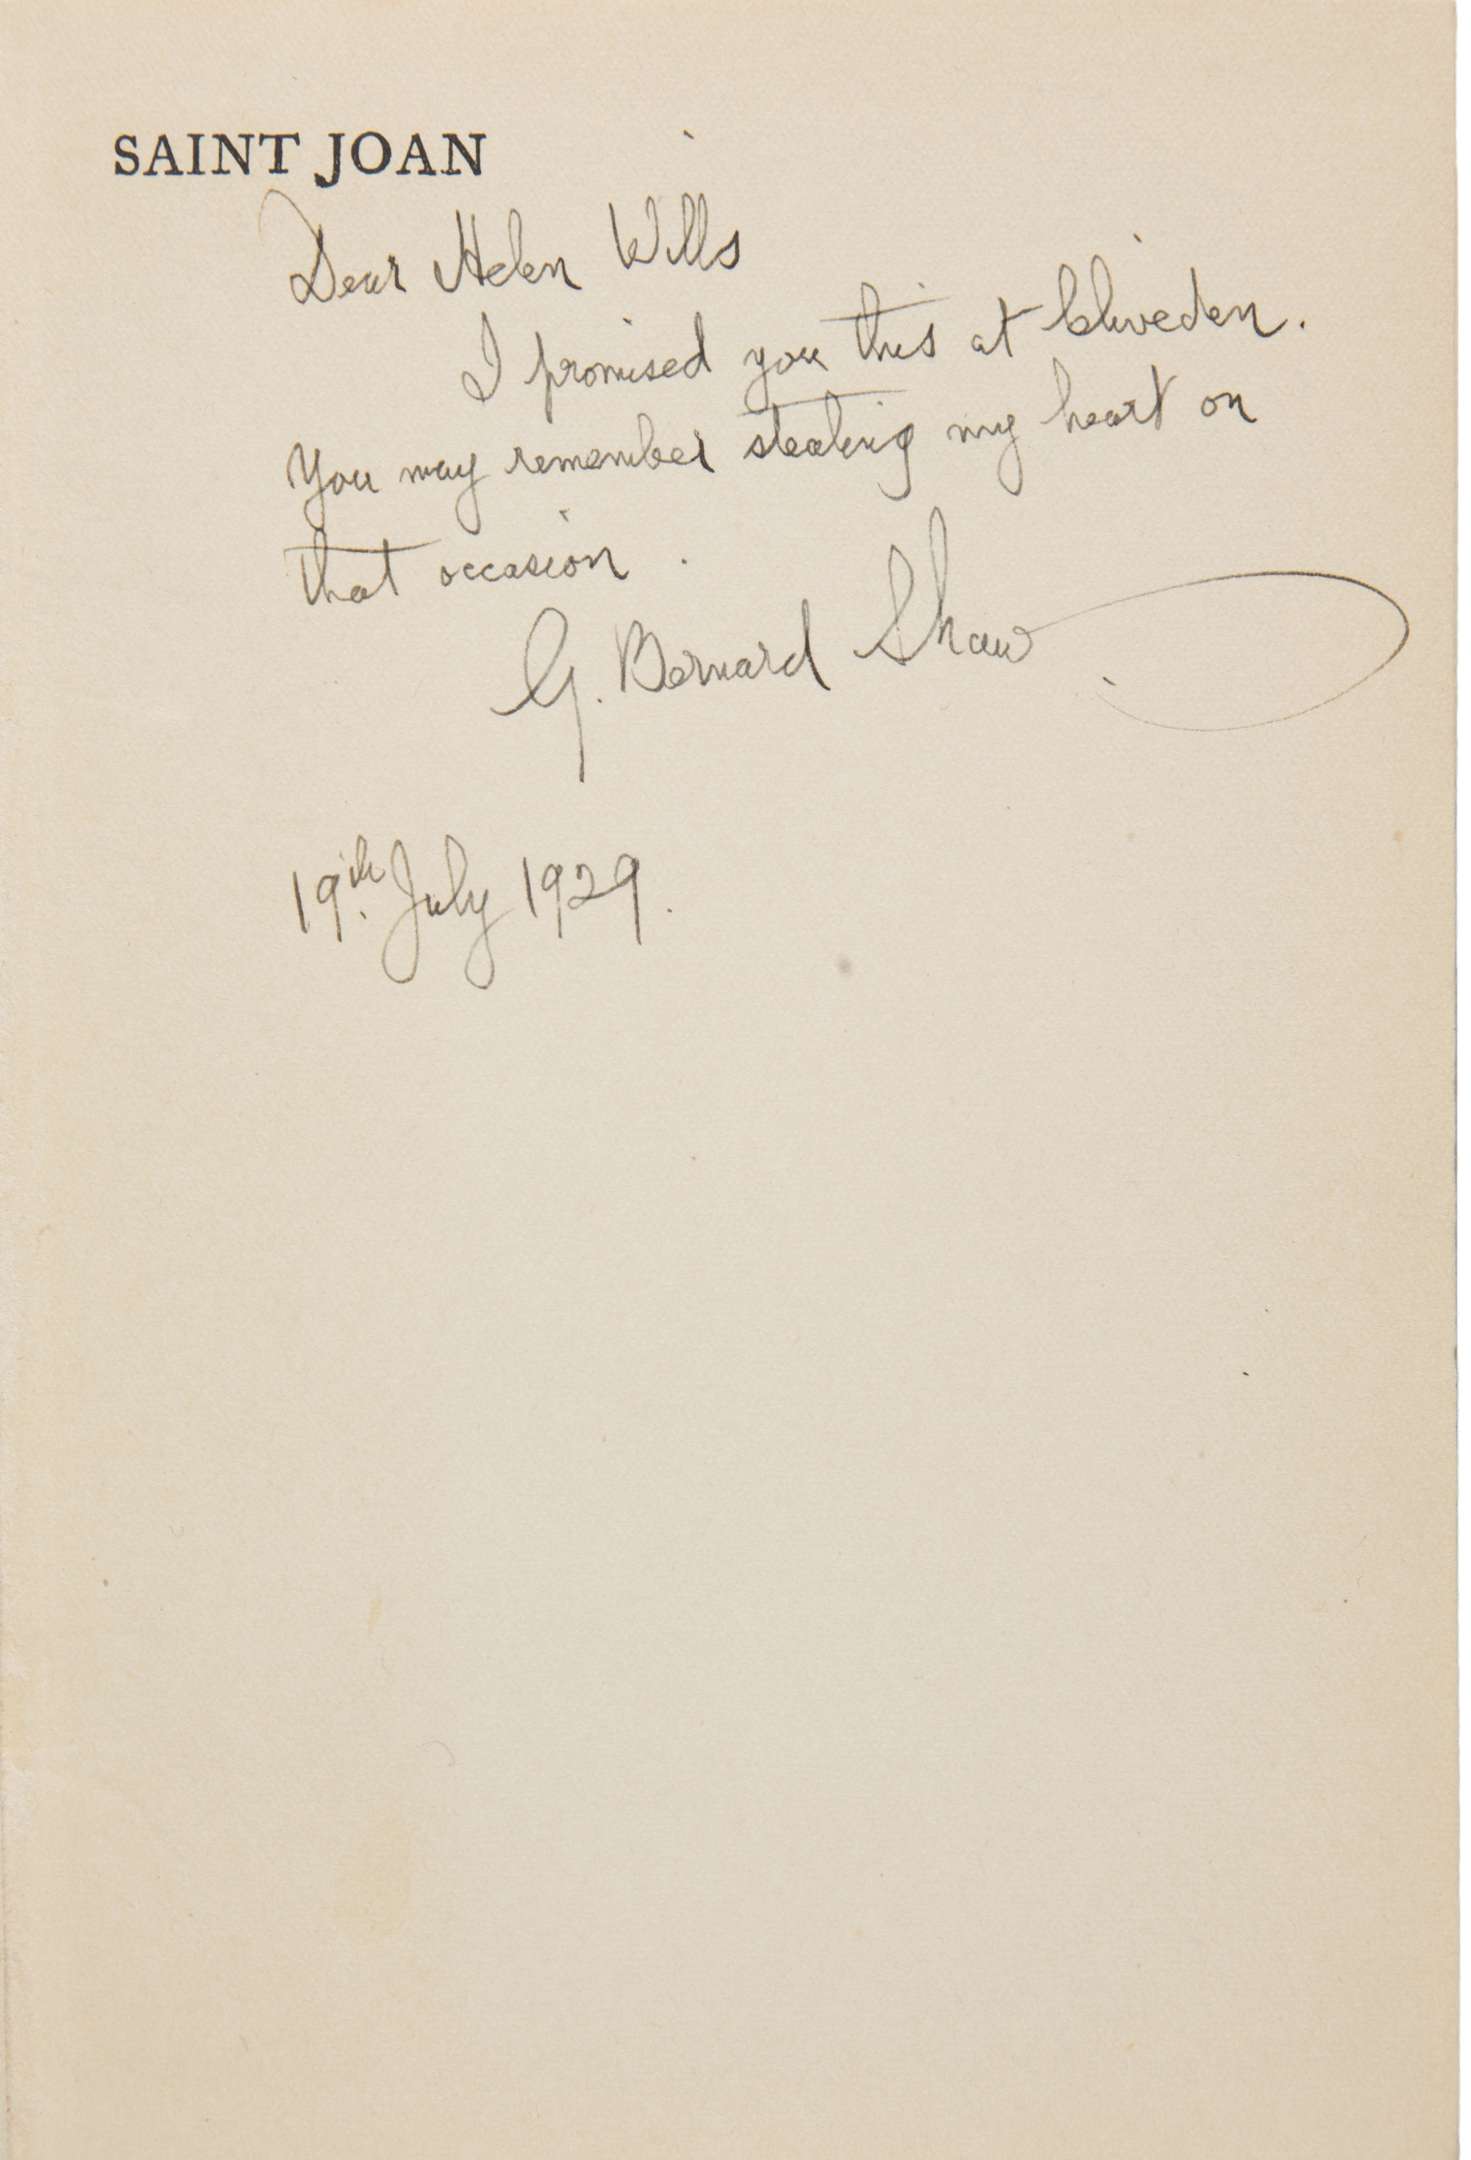 SAINT JOAN
Dear Helen Wills
I promised you this at Cliveden.
You may remember stealing my heart on
that occasion.
G. Bernard Shaw
19th. July 1929.